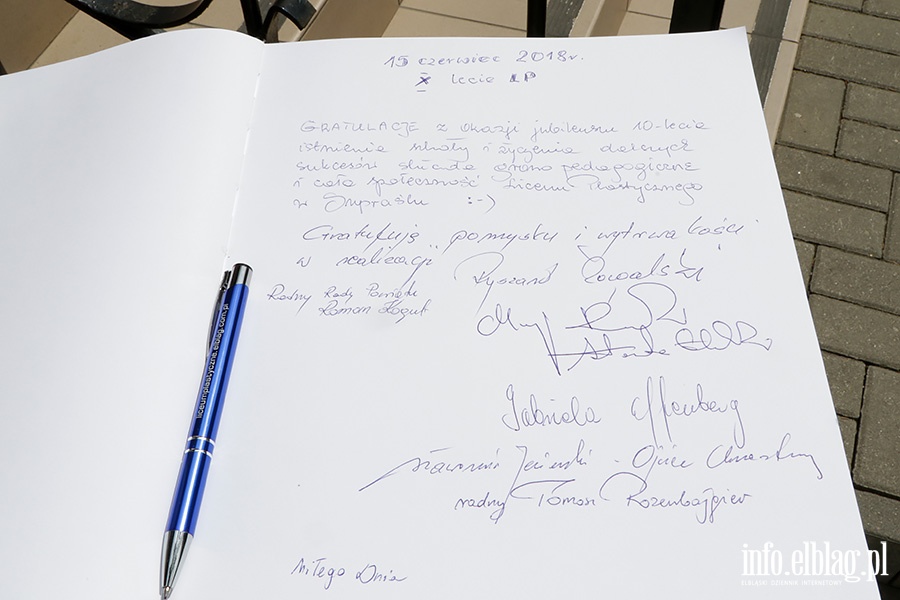 15 czerwiec 2018r.
X lecie LP
GRATULACJE z okazji jubileuszu 10-lecia
istnienia szkoły i życzenia dalszych
sukcesów składa grono pedagogiczne
i cała społeczność Liceum Plastycznego
w Supraślu :-)
Gratuluję pomysłu i wytrwałości
w realizacji Ryszard
Radny Rady Powiatu
Roman
Gabriela Effenberg
Sławomir
radny Tomasz
Miłego Dnia
liceumplastyczne.elblag.com.pl
info.elblag.pl
ELBLĄSKI DZIENNIK INTERNETOWY